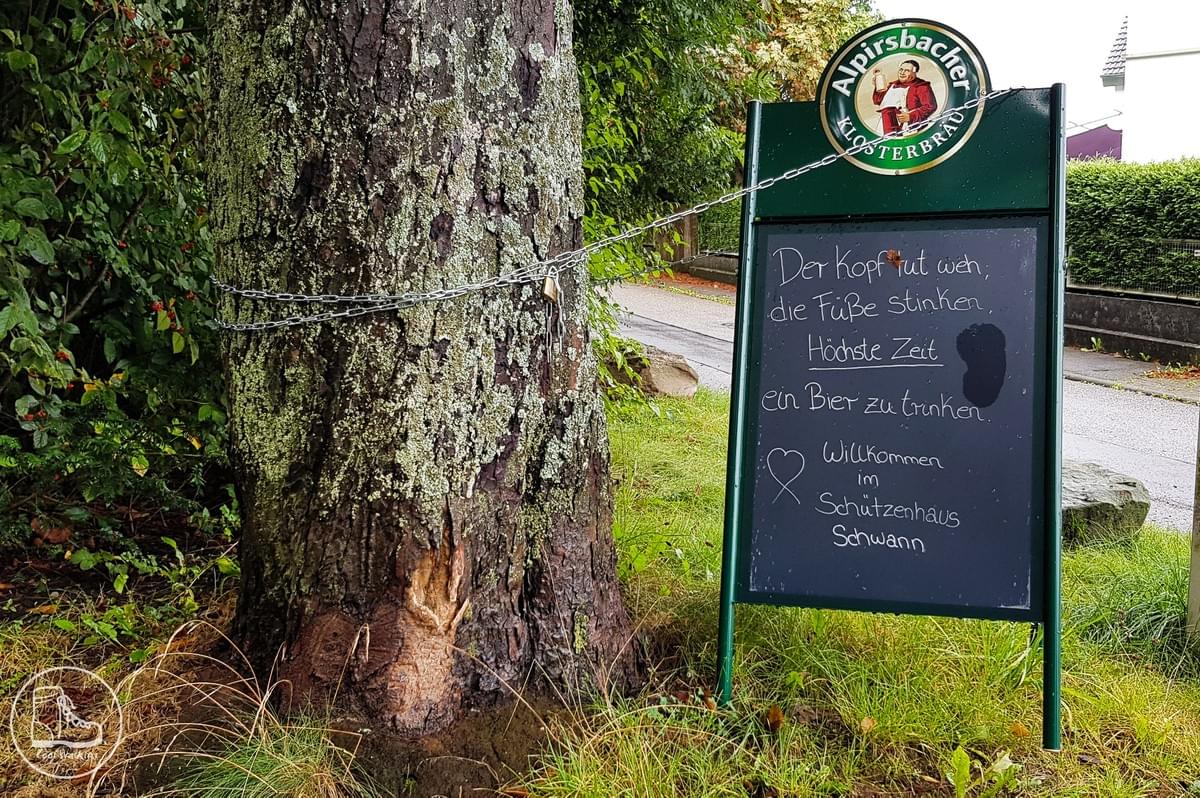 Alpirsbacher
KLOSTERBRÄU
Der Kopf tut weh,
die Füße stinken,
Höchste Zeit
ein Bier zu trinken.
Willkommen
im
Schützenhaus
Schwann